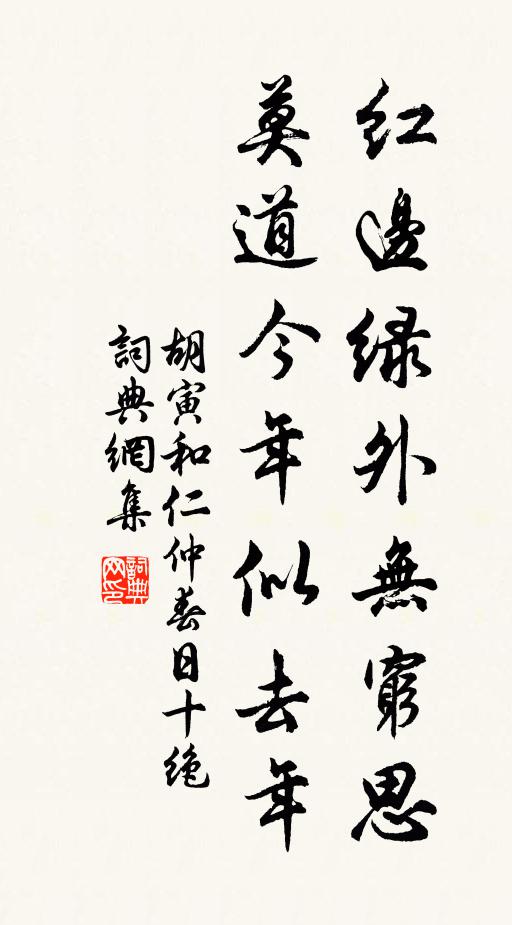 紅邊緑外無窮思
莫道今年似去年
胡寅和仁仲春日十绝
詞典網集
詞典网印